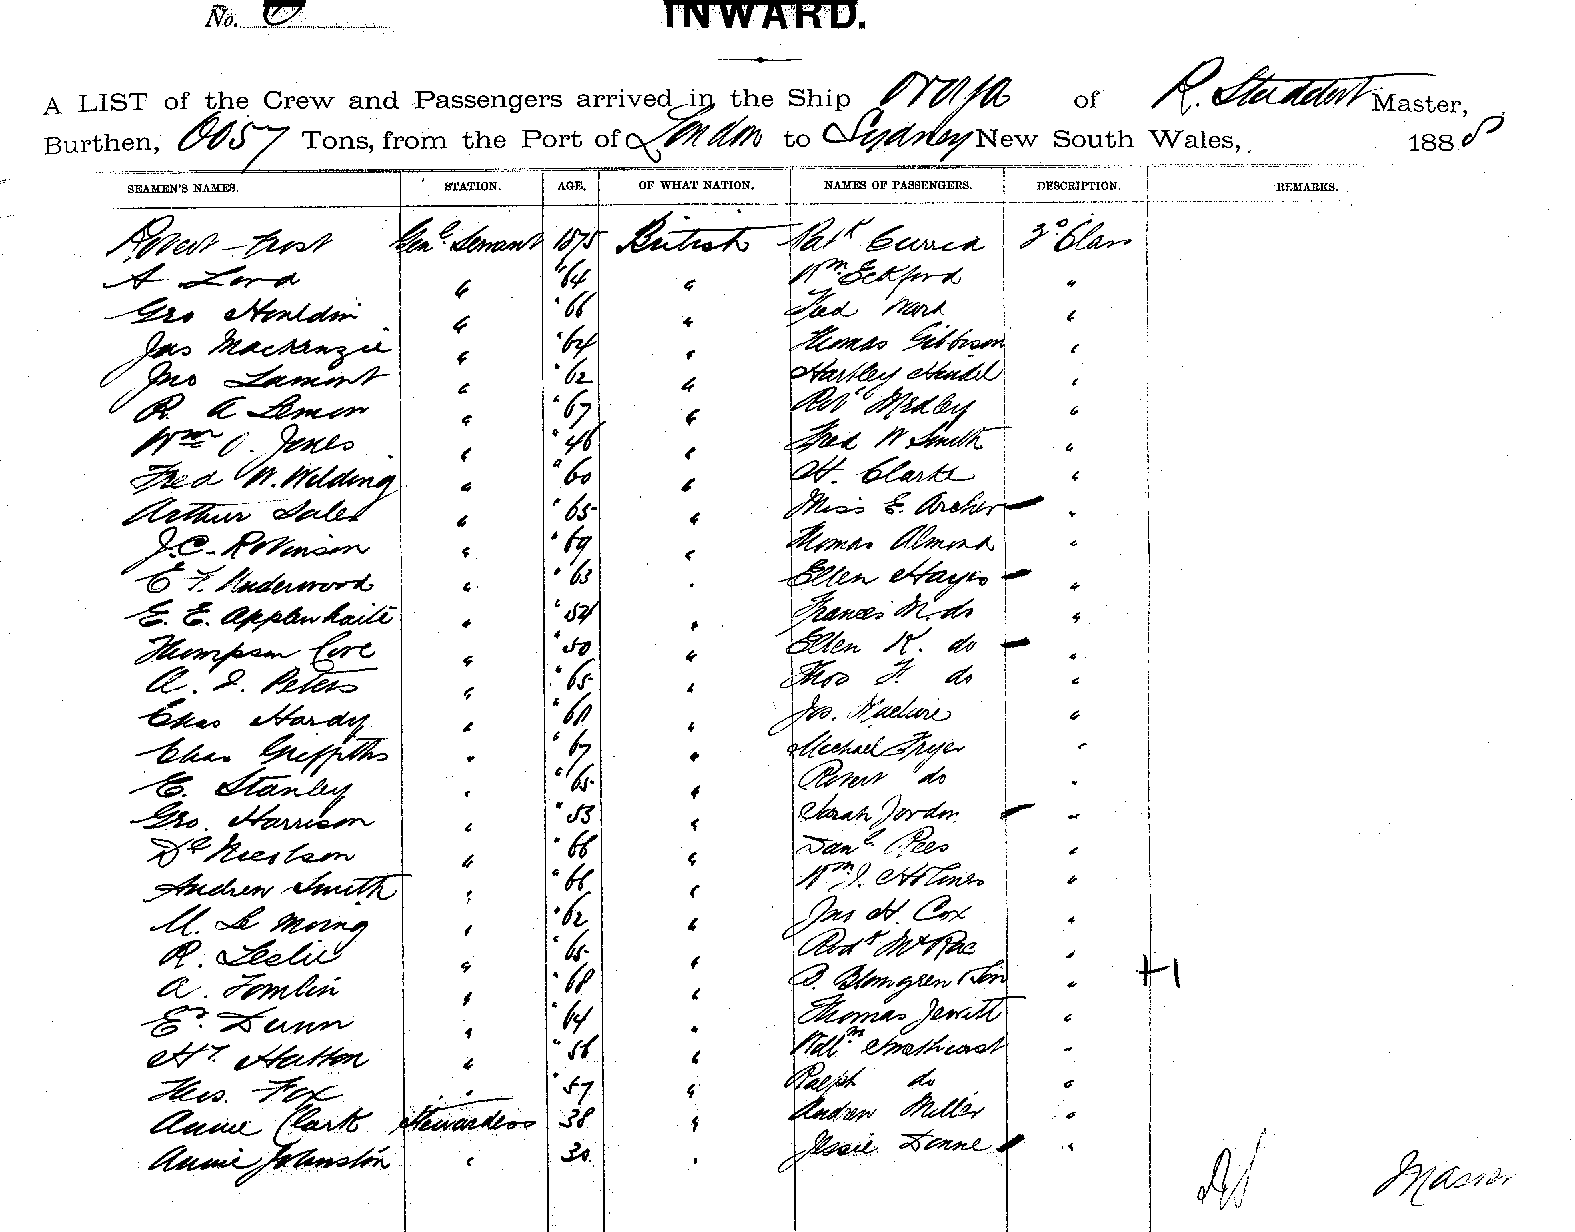 No.
INWARD.
A LIST of the Crew and Passengers arrived in the Ship Oroya of R. Studdert Master,
Burthen, 6057 Tons, from the Port of London to Sydney New South Wales, 1888
SEAMEN'S NAMES. STATION. AGE. OF WHAT NATION. NAMES OF PASSENGERS. DESCRIPTION. REMARKS.
Robert Frost Genl Servant 1875 British Patk 3o Class
A Lord " "64 " Wm Eckford "
Geo " "66 " Fred Ward "
Jas Mackenzie " "64 " Thomas Gibbison "
Jno Lamont " "62 " Hartley "
R. A Lemon " "67 " Robt Medley "
Wm O. Jones " "46 " Fred W Smith "
Fred W. Welding " "60 " H. Clarke "
Arthur Sales " "65 " Miss E. Archer "
J. C. Robinson " "69 " Thomas Almond "
E F. Underwood " "63 " Ellen Hayes "
E. E. " "54 " Frances M. do "
Thompson " "50 " Ellen K. do "
A. J. Peters " "65 " Thos F. do "
Chas Hardy " "60 " Jos. "
Chas Griffiths " "67 " Michael Fryer "
E. Stanley " "65 " Robert do "
Geo. Harrison " "53 " Sarah Jordon "
Dl " "66 " Danl Rees "
Andrew Smith " "66 " Wm J. Holmes "
M. Le Moing " "62 " Jas H. Cox "
R. Leslie " "65 " Rodk McRae "
A. Tomlin " "68 " Blomgren & Son " +1
Ed. Dunn " "64 " Thomas Jewitt "
Hy. Hatton " "56 " Willm "
Thos. Fox " "57 " Ralph do "
Annie Clark Stewardess 38 " Andrew Miller "
Annie Johnston " 30 " Jessie Donne "
Master